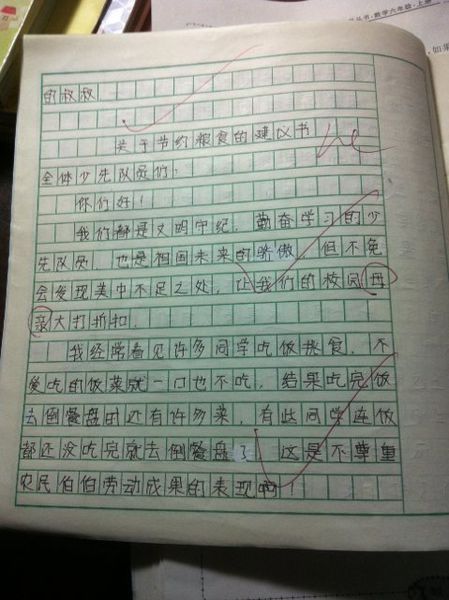 数学六年级·上册
如果
的叔叔。
关于节约粮食的建议书
全体少先队员们:
你们好!
我们都是文明守纪,勤奋学习的少
先队员,也是祖国未来的骄傲。但不免
会发现美中不足之处,让我们的校园母
亲大打折扣。
我经常看见许多同学吃饭挑食,不
爱吃的饭菜就一口也不吃,结果吃完饭
去倒餐盘时还有许多菜,有些同学连饭
都还没吃完就去倒餐盘了。这是不尊重
农民伯伯劳动成果的表现啊!